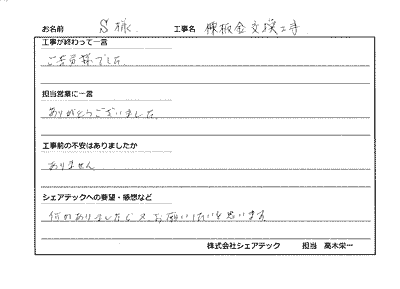 お名前 S 様. 工事名 棟板金交換工事
工事が終わって一言
ご苦労様でした.
担当営業に一言
ありがとうございました.
工事前の不安はありましたか
ありません
シェアテックへの要望・感想など
何かありましたら又、お願いしたいと思います.
株式会社シェアテック 担当 高木栄一